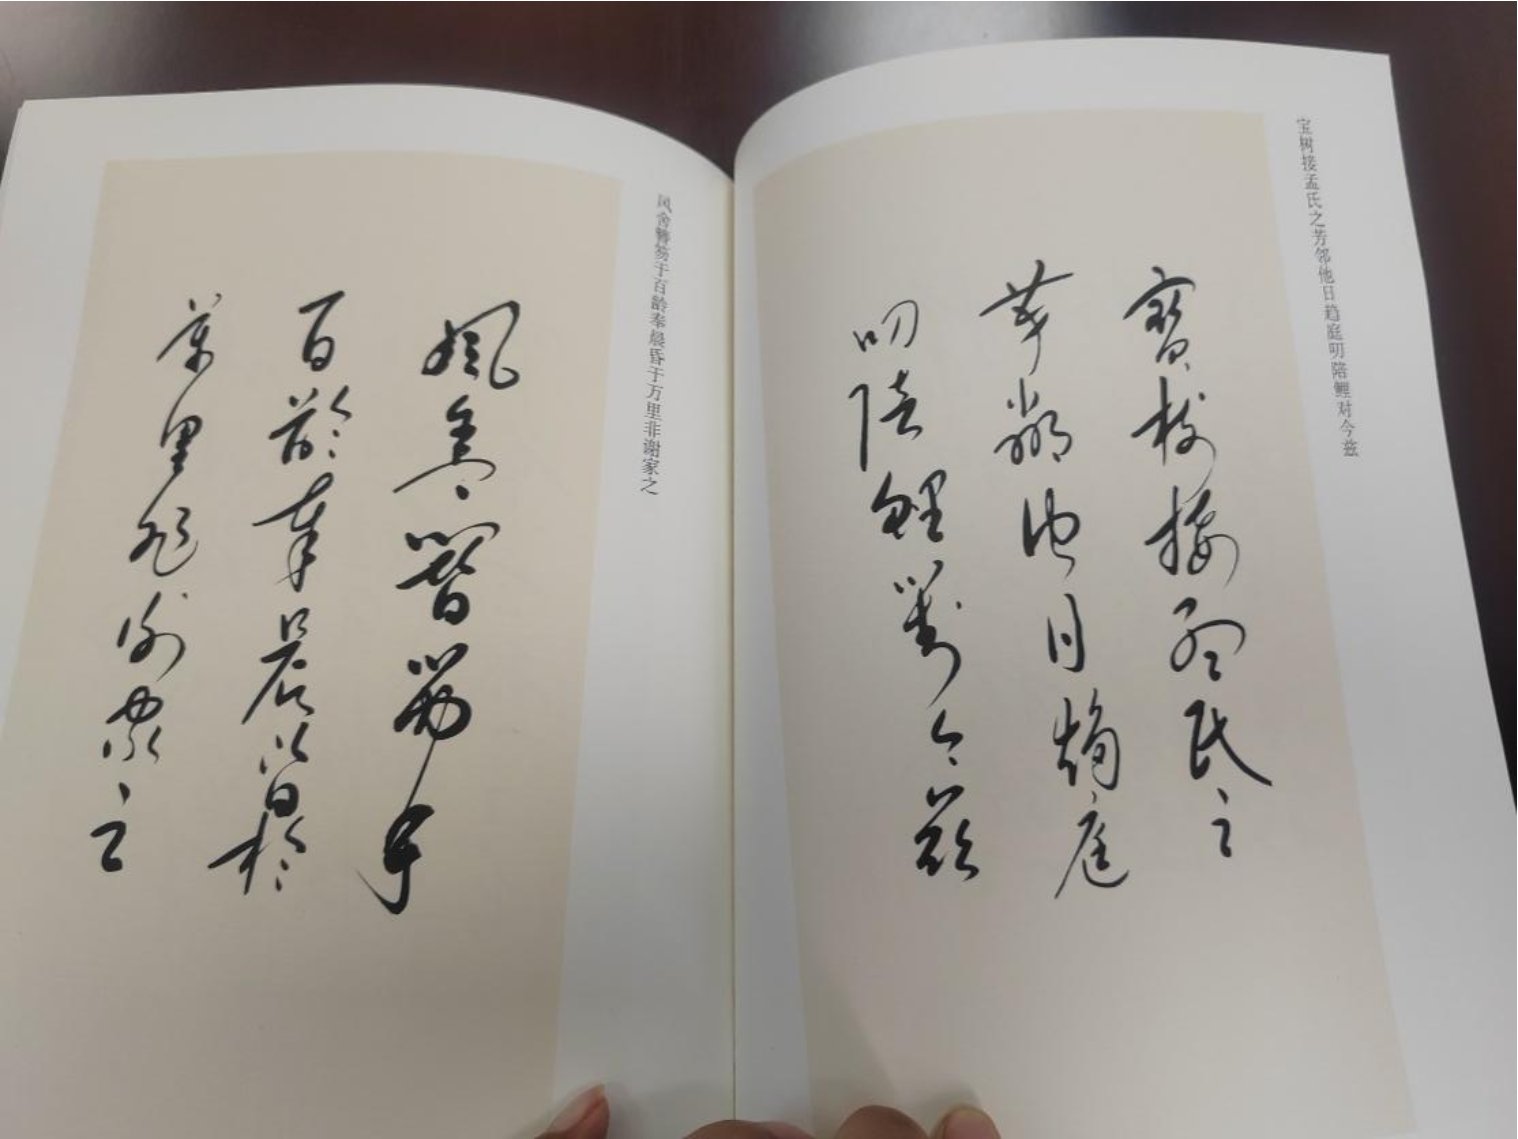 风舍簪笏于百龄奉晨昏于万里非谢家之
風舍簪笏于
百齡奉晨昏於
萬里非謝家之
宝树接孟氏之芳邻他日趋庭叨陪鲤对今兹
寶樹接孟氏之
芳鄰他日趨庭
叨陪鯉對今兹